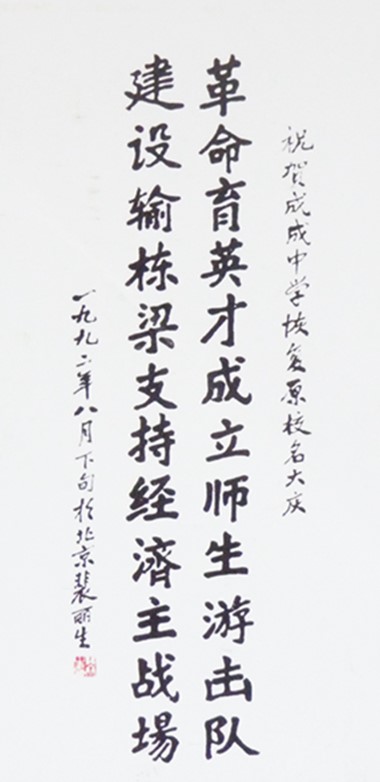 祝賀成成中学恢复原校名大庆
革命育英才成立师生游击队
建设输栋梁支持经濟主战場
一九九二年八月下旬於北京裴丽生